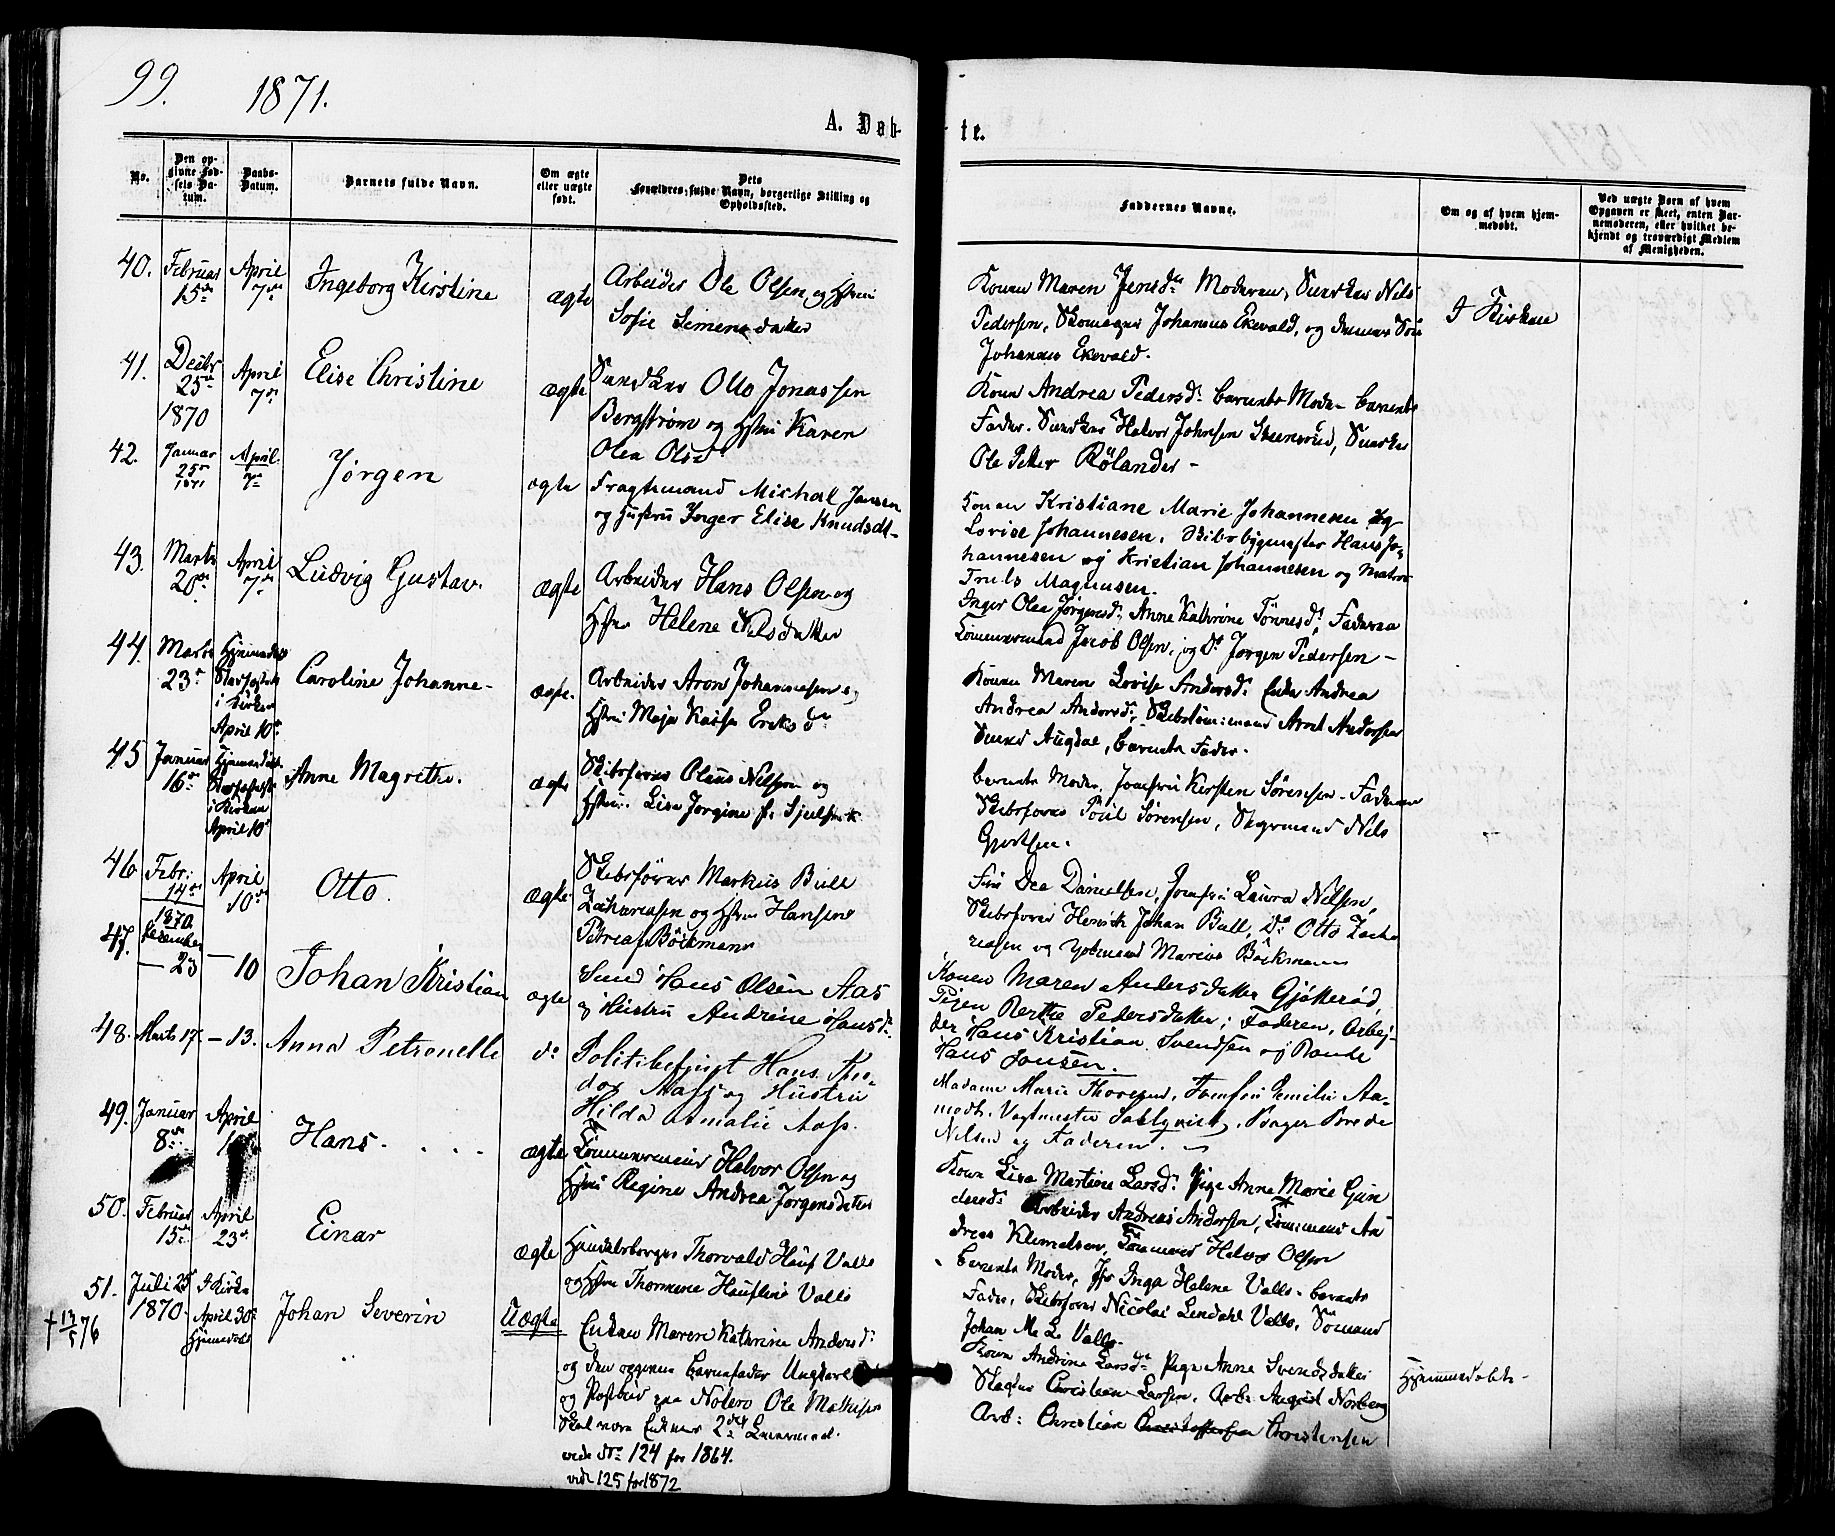 99.
1871.
A. Døb-
te.
No.
Den op-
givne Fød-
sels Da-
tum.
Daabs-
Datum.
Barnets fulde Navn.
Om ægte
eller uægte
født.
Dets
Forældres fulde Navn, borgerlige Stilling og
Opholdssted.
Faddernes Navne.
Om og af hvem hjem-
medøbt.
Ved uægte Børn af hvem
Opgaven er skeet, enten Bar-
nemoderen, eller hvilket be-
kjendt og troværdigt Medlem
af Menigheden.
40.
Februar
15de
April
7de
Ingeborg Kirstine
ægte
Arbeider Ole Olsen og Hstru
Sofie Simensdatter
Konen Maren Jensd: Moderen, Snedker Nils
Pedersen, Skomager Johannes Ekevald, og dennes Søn
Johannes Ekevald.
I Kirken
41.
Decbr
25de
1870
April
7de
Elise Christine
ægte
Snedker Otto Jonassen
Bergstrøm og Hstru Karen
Olea Olsd
Kone Andrea Pedersd: barnets Moder barnets
Fader. Snedker Halvor Johnsen Steensrud, Snedker
Ole Petter Rølander -
42.
Januar
25de
1871
April
7de
Jørgen
ægte
Fragtemand Michael Jansen
og Hustru Inger Elise Knudsdt-
Konen Kristiane Marie Johannesen og
Lovise Johannesen. Skibsbygmester Hans Jo-
hannesen og Kristian Johannesen og Matros
Truls Magnusen.
43.
Marts
20de
April
7de
Ludvig Gustav.
ægte
Arbeider Hans Olsen og
Hstru Helene Nilsdatter
Inger Olea Jørgensd: Anne Kathrine Tønnesd: Faderen
Tømmermand Jacob Olsen, og Do Jørgen Pedersen -
44.
Marts
23de
Hjemmedøbt
Stadfæstet
i Kirken
April 10de
Caroline Johanne-
ægte.
Arbeider Aron Johannesen og
Hstru Maja Kaisa Eriksd
Konen Maren Lovise Andersd: Enke Andrea
Andrea Andersd: Skibstøm:mand Arnt Andersen
Smed Augdal, barnets Fader.
45
Januar
16de
Hjemmedøbt
Stadfæstet
i Kirken
April 10de
Anne Magrethe.
ægte
Skibsfører Olaus Nilsen og
Hstru. Lisa Jørgine f.
barnets Moder, Jomfru Kirsten Sørensen - Faderen
Skibsfører Poul Sørensen, Styrmand Nils
Gjertsen.
46
Febr:
14de
April
10de
Otto.
ægte
Skibsfører Markus Bull
Zachariasen og Hstru Hansine
Petrea f. Böckmann
Fru Dea Danielsen, Jomfru Laura Nilsen,
Skibsfører Henrik Johan Bull, Do Otto Zacha
riasen og Marius Böckmann
47.
1870
December
- 23
- 10
Johan Kristian
ægte
Smed Hans Olsen Aas
og Hustru Andrine Hansd:
Konen Maren Andersdatter Gjøtterød,
Pigen Berthe Pedersdatter; Faderen, Arbej-
der Hans Kristian Svendsen og Bonde
Hans Jansen.
48.
Marts 17.
- 13.
Anna Petronelle
do
Politibetjent Hans Theo-
dor Aass og Hustru
Hilda Amalie Aass.
Madame Marie Thoresen, Jomfru Emilie Aa-
modt. Vagtmester Sahlqvist, Bager Brede
Nilsen og Faderen.
49.
Januar
8de
April
Hans.
ægte
Tømmermand Halvor Olsen og
Hstru Regine Andrea Jørgensdatter
Kone Lisa Martine Larsd: Pige Anne Marie Gun
dersd: Arbeider Andreas Andersen, Tøm:mand An
dreas Klemetsen, Tømmerm Halvor Olsen
50.
Februar
15de
April
23de
Einar
ægte
Handelsborger Thorvald Hauf Valls
og Hstru Thormine Valls
barnets Moder, Jfr Inga Helene Valls - barnets
Fader, Skibsfører Nicolai Lindahl Valls, Sømand
Johan M. L. Valls.
51.
Juli 25de
1870.
I Kirken
April 30de
Hjemmedøbt
† 13/5 76
Johan Severin
Uægte
Enken Maren Kathrine Andersd:
og den opgivne Barnefader Ungkarl
og Postbud paa Nøtterø Ole Mathisen
Skal være Enkens 2det Leiermaal.
vide No 124 for 1864.
vide 125 for 1872
Kone Andrine Larsd: Pige Anne Svendsdatter
Slagter Christian Larsen, Arb: August Norberg
Arb: Christian Christoffersen Christensen
Hjemmedøbt -